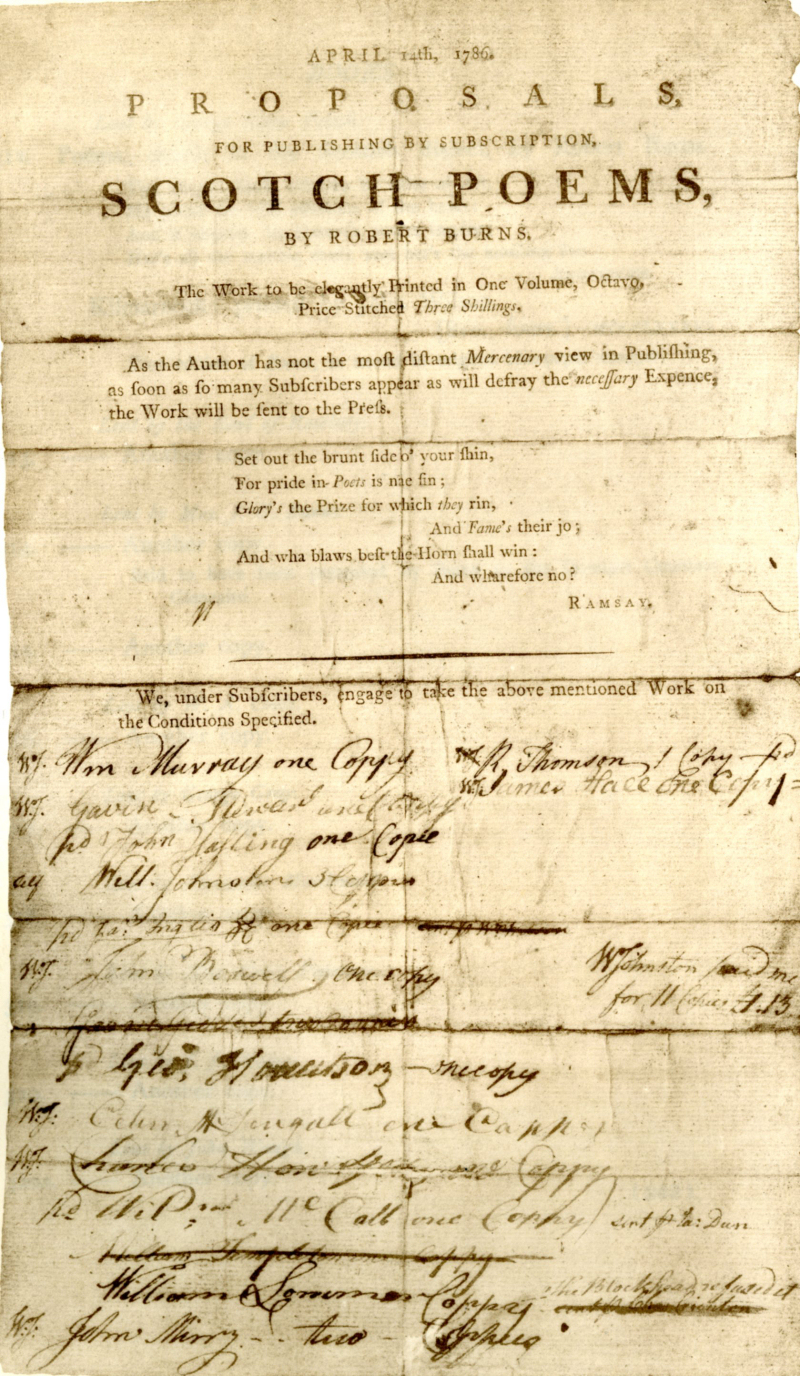 APRIL 14th, 1786.
PROPOSALS,
FOR PUBLISHING BY SUBSCRIPTION,
SCOTCH POEMS,
BY ROBERT BURNS.
The Work to be elegantly Printed in One Volume, Octavo,
Price Stitched Three Shillings.
As the Author has not the moſt diſtant Mercenary view in Publiſhing,
as ſoon as ſo many Subſcribers appear as will defray the neceſſary Expence,
the Work will be ſent to the Preſs.
Set out the brunt ſide o' your ſhin,
For pride in Poets is nae ſin;
Glory's the Prize for which they rin,
And Fame's their jo;
And wha blaws beſt the Horn ſhall win:
And wharefore no?
RAMSAY.
We, under Subſcribers, engage to take the above mentioned Work on
the Conditions Specified.
WJ. Wm Murray one Coppy
R Thomson 1 Copy pd
James Hall one Copy
WJ. Gavin one Coppy
pd John one Copie
Will. Johnston
one Copie
WJ. John Boswell one copy
WJohnston paid me
for 11 Copies £1.13
Geo. Howatson one copy
WJ. one Coppy
WJ. Charles one Coppy
pd McCall one Coppy sent pr Ja: Dun
Coppy
William Coppay
The Blockhead refused it
WJ. John Mirry two Coppies